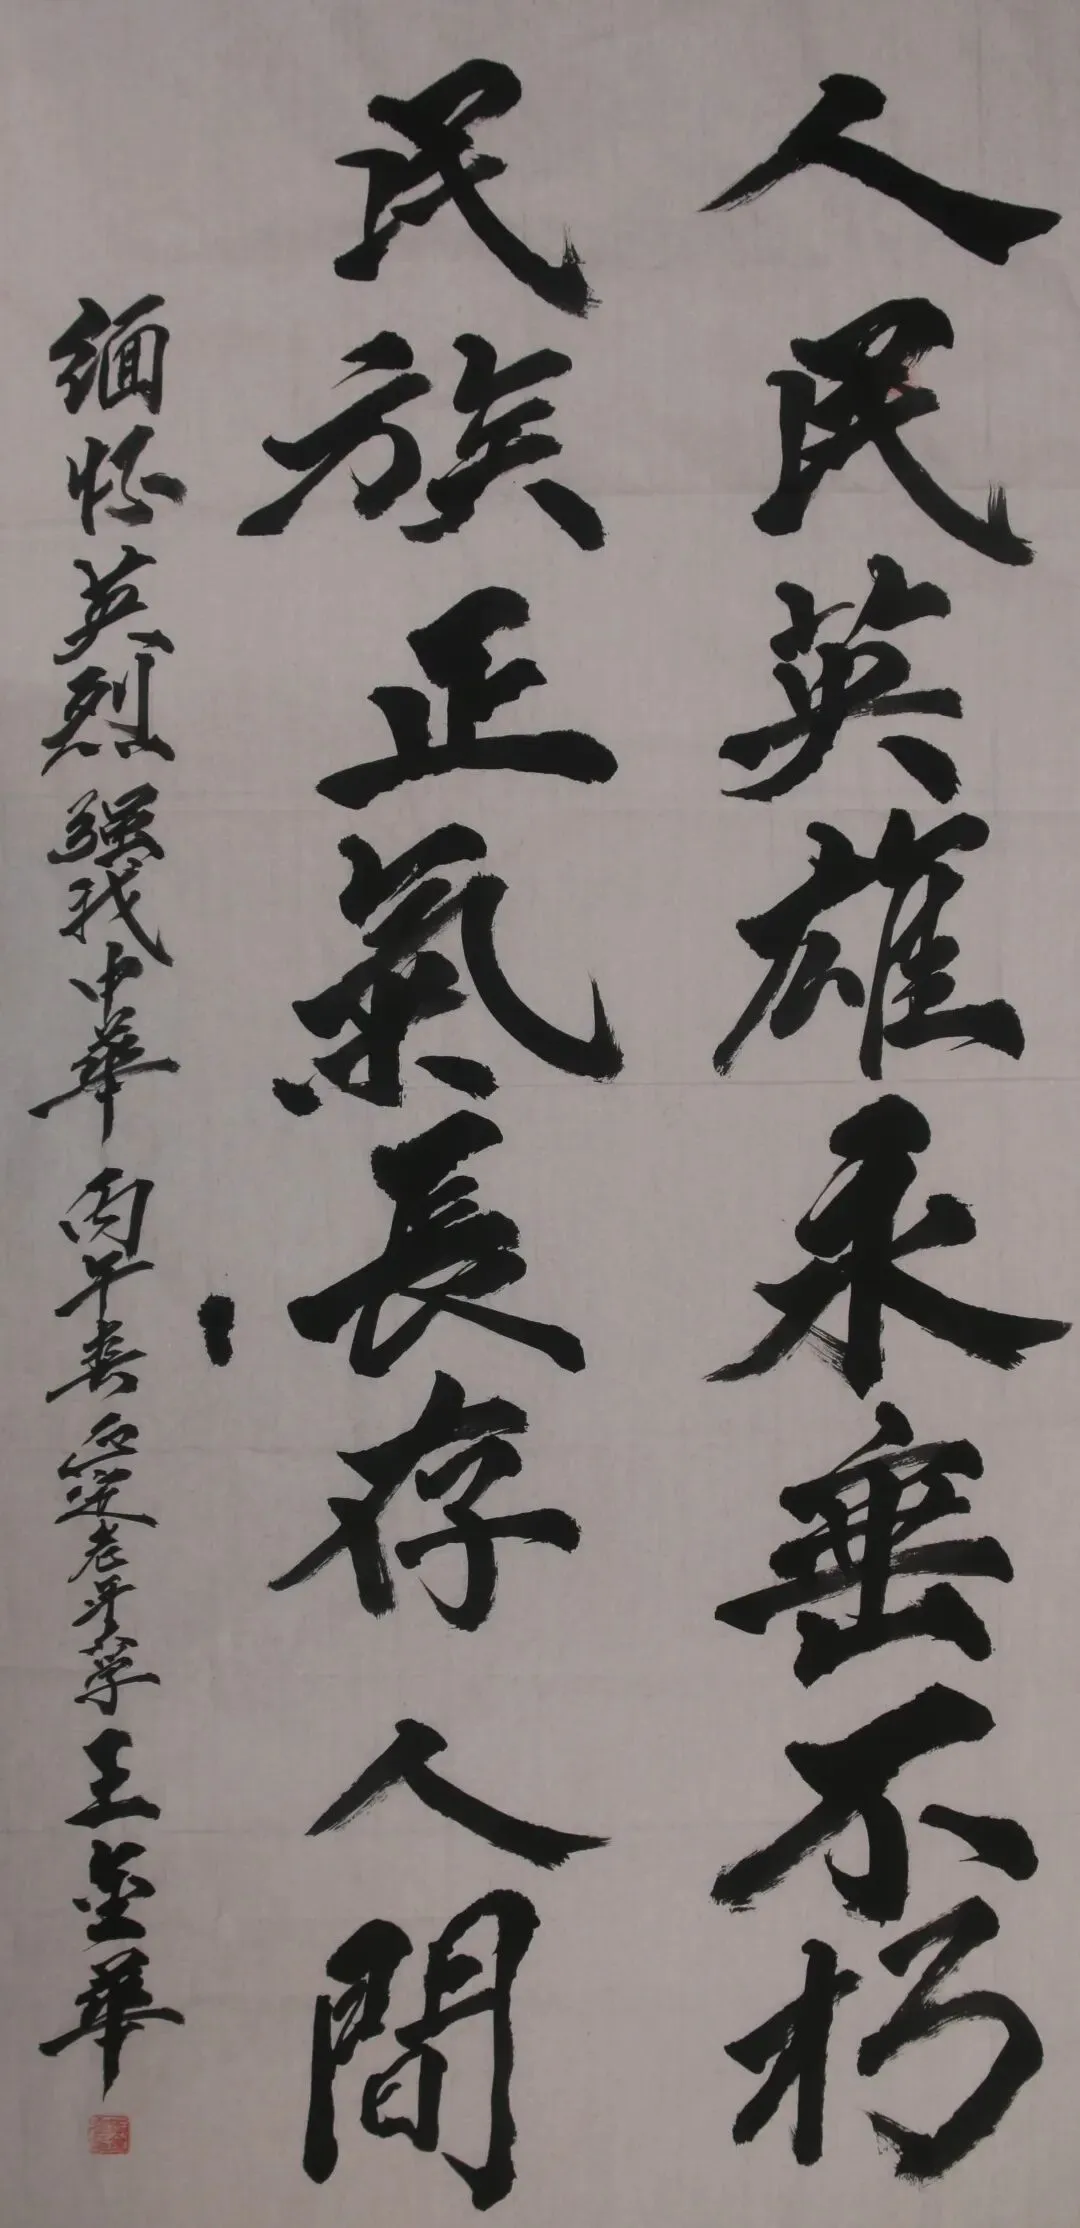 人民英雄永垂不朽
民族正氣長存人間
缅怀英烈强我中華丙午春延老年大学王金華